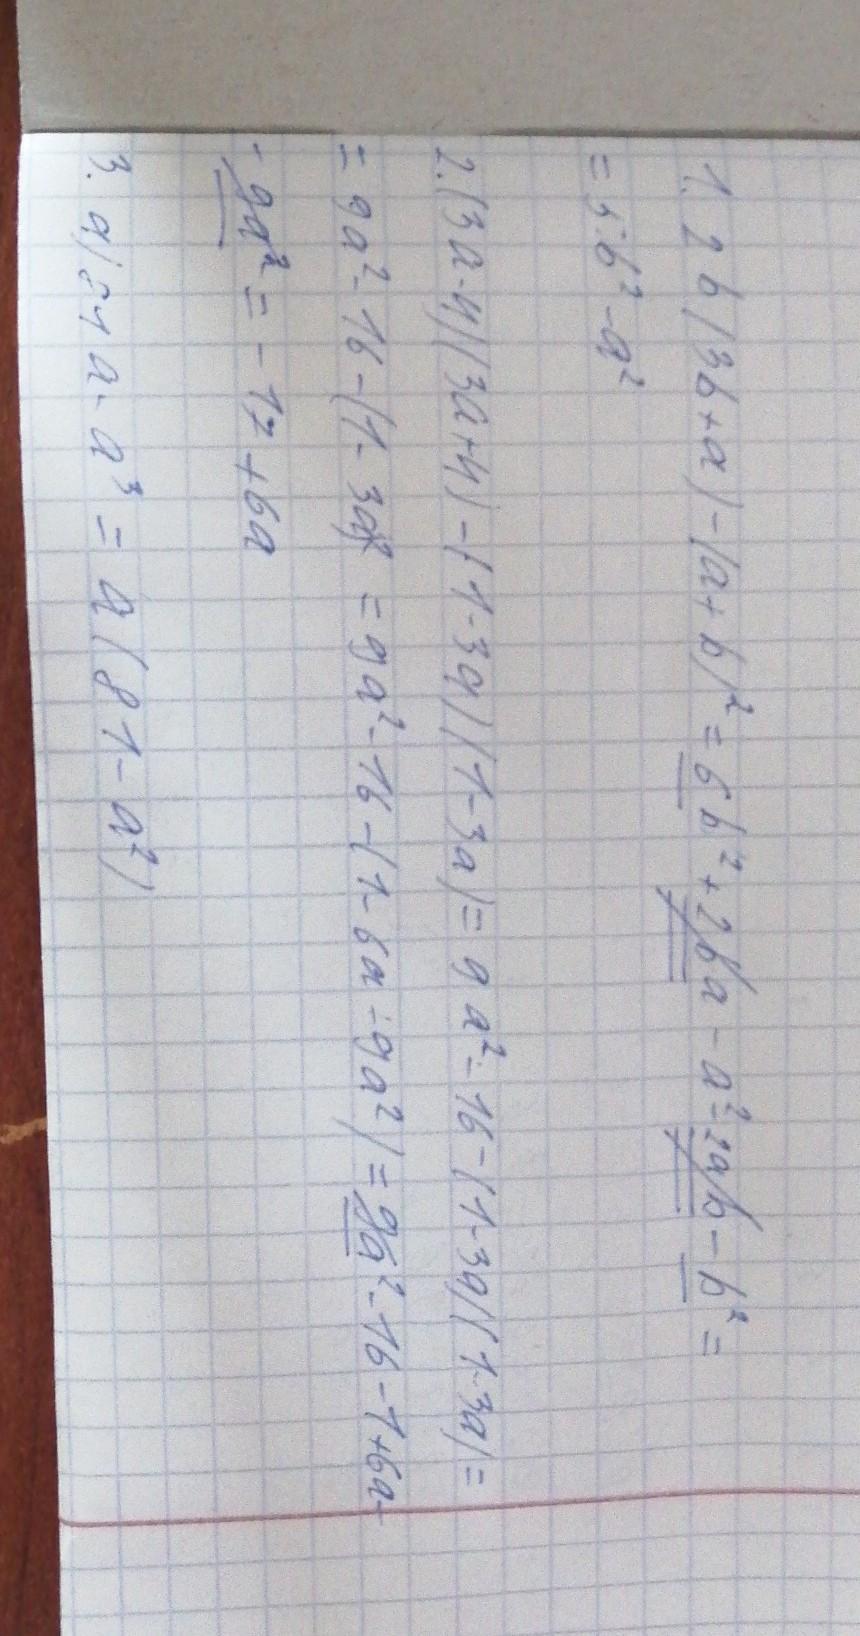 1. 2b(3b+a)-(a+b)² = 6b²+2ba-a²-2ab-b² =
= 5b²-a²
2. (3a-4)(3a+4)-(1-3a)(1-3a) = 9a²-16-(1-3a)(1-3a) =
= 9a²-16-(1-3a)² = 9a²-16-(1-6a+9a²) = 9a²-16-1+6a-
-9a² = -17+6a
3. a) 81a-a³ = a(81-a²)